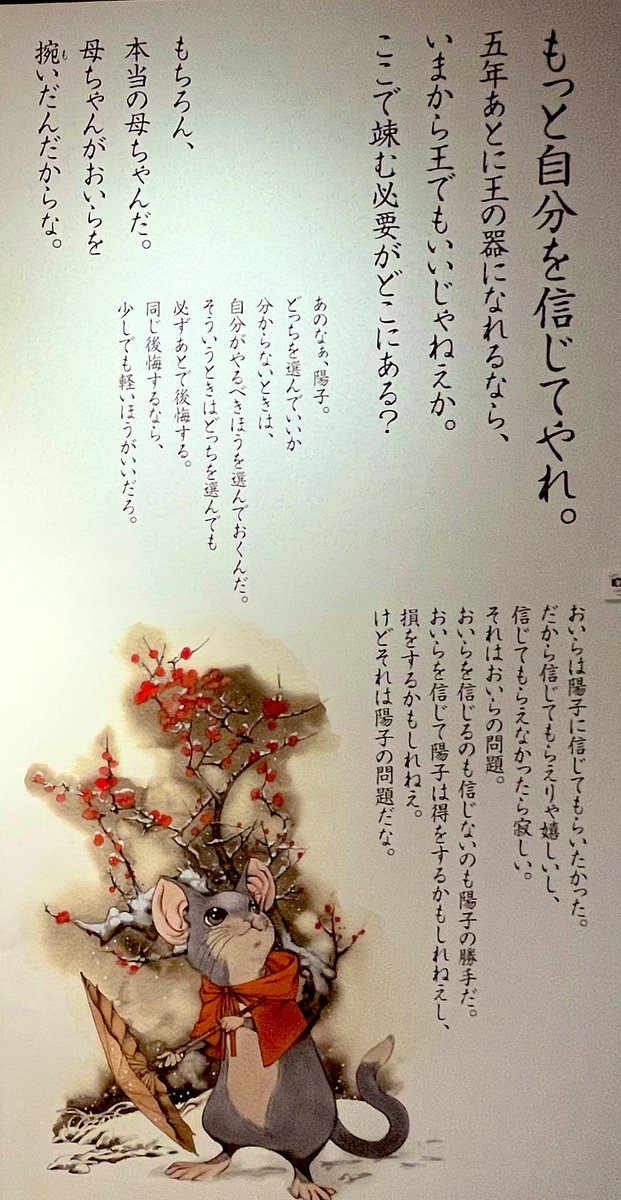 もっと自分を信じてやれ。
五年あとに王の器になれるなら、
いまから王でもいいじゃねえか。
ここで竦む必要がどこにある？
もちろん、
本当の母ちゃんだ。
母ちゃんがおいらを
捥いだんだからな。
も
あのなぁ、陽子。
どっちを選んでいいか
分からないときは、
自分がやるべきほうを選んでおくんだ。
そういうときはどっちを選んでも
必ずあとで後悔する。
同じ後悔するなら、
少しでも軽いほうがいいだろ。
おいらは陽子に信じてもらいたかった。
だから信じてもらえりゃ嬉しいし、
信じてもらえなかったら寂しい。
それはおいらの問題。
おいらを信じるのも信じないのも陽子の勝手だ。
おいらを信じて陽子は得をするかもしれねえし、
損をするかもしれねえ。
けどそれは陽子の問題だな。